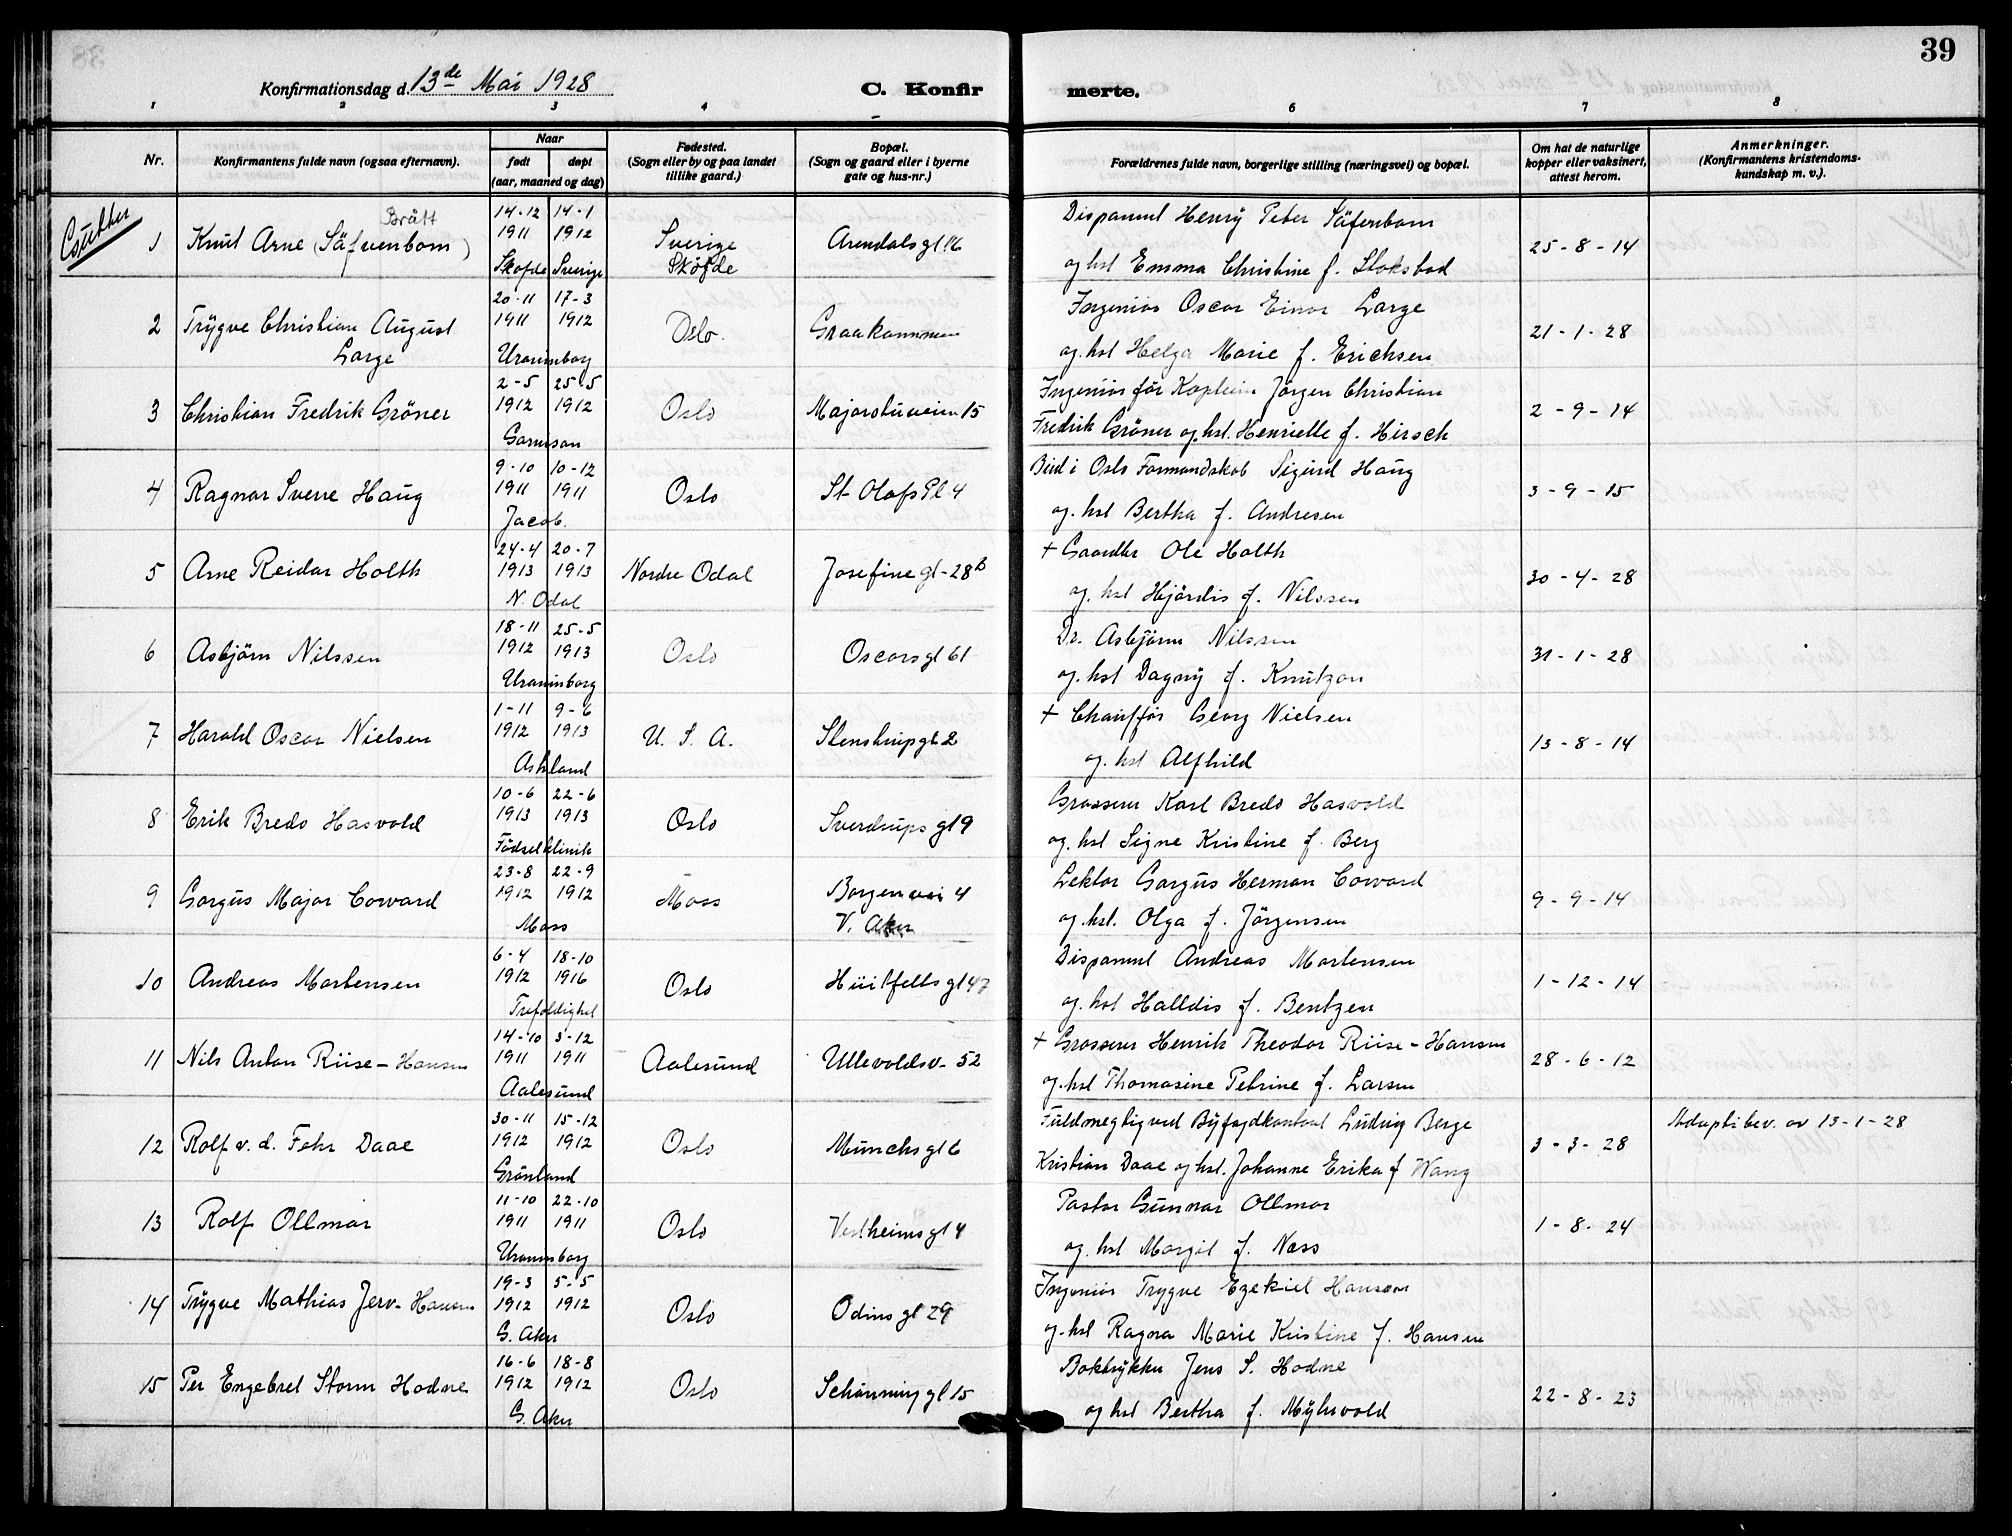 39
Konfirmationsdag d. 13de Mai 1928
C. Konfir merte.
1 2 3 4 5 6 7 8
Nr.
Konfirmantens fulde navn (ogsaa efternavn).
Naar
født døpt
(aar, maaned og dag)
Fødested.
(Sogn eller by og paa landet
tillike gaard.)
Bopæl.
(Sogn og gaard eller i byerne
gate og hus-nr.)
Forældrenes fulde navn, borgerlige stilling (næringsvei) og bopæl.
Om hat de naturlige
kopper eller vaksinert,
attest herom.
Anmerkninger.
(Konfirmantens kristendoms-
kundskap m. v.).
Brått
1 Knut Arne (Säfvenbom) 14-12 1911 14-1 1912 Sverige Arendalsgt 16
Skøfde Sverige Sköfde
Disponent Henry Peter Säfenbom
og hst Emma Christine f. Stokstad
25-8-14
2 Trygve Christian August 20-11 1911 17-3 1912 Oslo. Graakammen
Large Uranienborg
Ingeniør Oscar Einar Large
og hst Helga Marie f. Erichsen
21-1-28
3 Christian Fredrik Gröner 2-5 1912 25-5 1912 Oslo Majorstuveien 15
Garnison
Ingeniør før Kaptein Jörgen Christian
Fredrik Gröner og hst. Henriette f. Hirsch
2-9-14
4 Ragnar Sverre Haug 9-10 1911 10-12 1911 Oslo St Olafs Pl 4
Jacob.
Bud i Oslo Formandskab Sigurd Haug
og. hst Bertha f. Andresen
3-9-15
5 Arne Reidar Holth 24-4 1913 20-7 1913 Nordre Odal Josefine gt-28B
N. Odal
+ Gaardbr Ole Holth
og. hst Hjördis f. Nilssen
30-4-28
6 Asbjörn Nilssen 18-11 1912 25-5 1913 Oslo Oscarsgt 61
Uranienborg
Dr. Asbjörn Nilssen
og. hst Dagny f. Knutzon
31-1-28
7 Harald Oscar Nielsen 1-11 1912 9-6 1913 U. S. A. Stenstrupgt 2
Ashland
+ Chauffør Georg Nielsen
og. hst Alfhild
13-8-14
8 Erik Bredo Hasvold 10-6 1913 22-6 1913 Oslo Sverdrups gt 9
Födselklinik
Grosserer Karl Bredo Hasvold
og. hst Signe Kristine f. Berg
9 Gorgus Major Coward 23-8 1912 22-9 1912 Moss Borgenvei 4
Moss V. Aker
Lektor Gorgus Herman Coward
og hst. Olga f. Jörgensen
9-9-14
10 Andreas Mortensen 6-4 1912 18-10 1916 Oslo Huitfeldts gt 47
Trefoldighet
Disponent Andreas Mortensen
og. hst Halldis f. Bentzen
1-12-14
11 Nils Anton Riise-Hansen 14-10 1911 3-12 1911 Aalesund Ullevoldsv- 52
Aalesund
+ Grosserer Henrik Theodor Riise-Hansen
og. hst Thomasine Petrine f. Larsen
28-6-12
12 Rolf v. d. Fehr Daae 30-11 1912 15-12 1912 Oslo Munchs gt 6
Grönland
Fuldmegtig ved Byfogdkontoret Ludvig Berge
Kristian Daae og hst. Johanne Erika f Wang
3-3-28
Adoptibev. av 13-1-28
13 Rolf Ollmar 11-10 1911 22-10 1911 Oslo Vestheims gt 4
Uranienborg
Pastor Gunnar Ollmar
og. hst Margit f. Næss
1-8-24
14 Trygve Mathias Jerv-Hansen 19-3 1912 5-5 1912 Oslo Odins gt 29
G. Aker
Ingeniør Trygve Ezekiel Hansen
og. hst Ragna Marie Kristine f. Hansen
15 Per Engebret Storm Hodne 16-6 1912 18-8 1912 Oslo Schönning gt 15
G. Aker
Boktrykker Jens S. Hodne
og hst Bertha f. Myhrvold
22-8-23